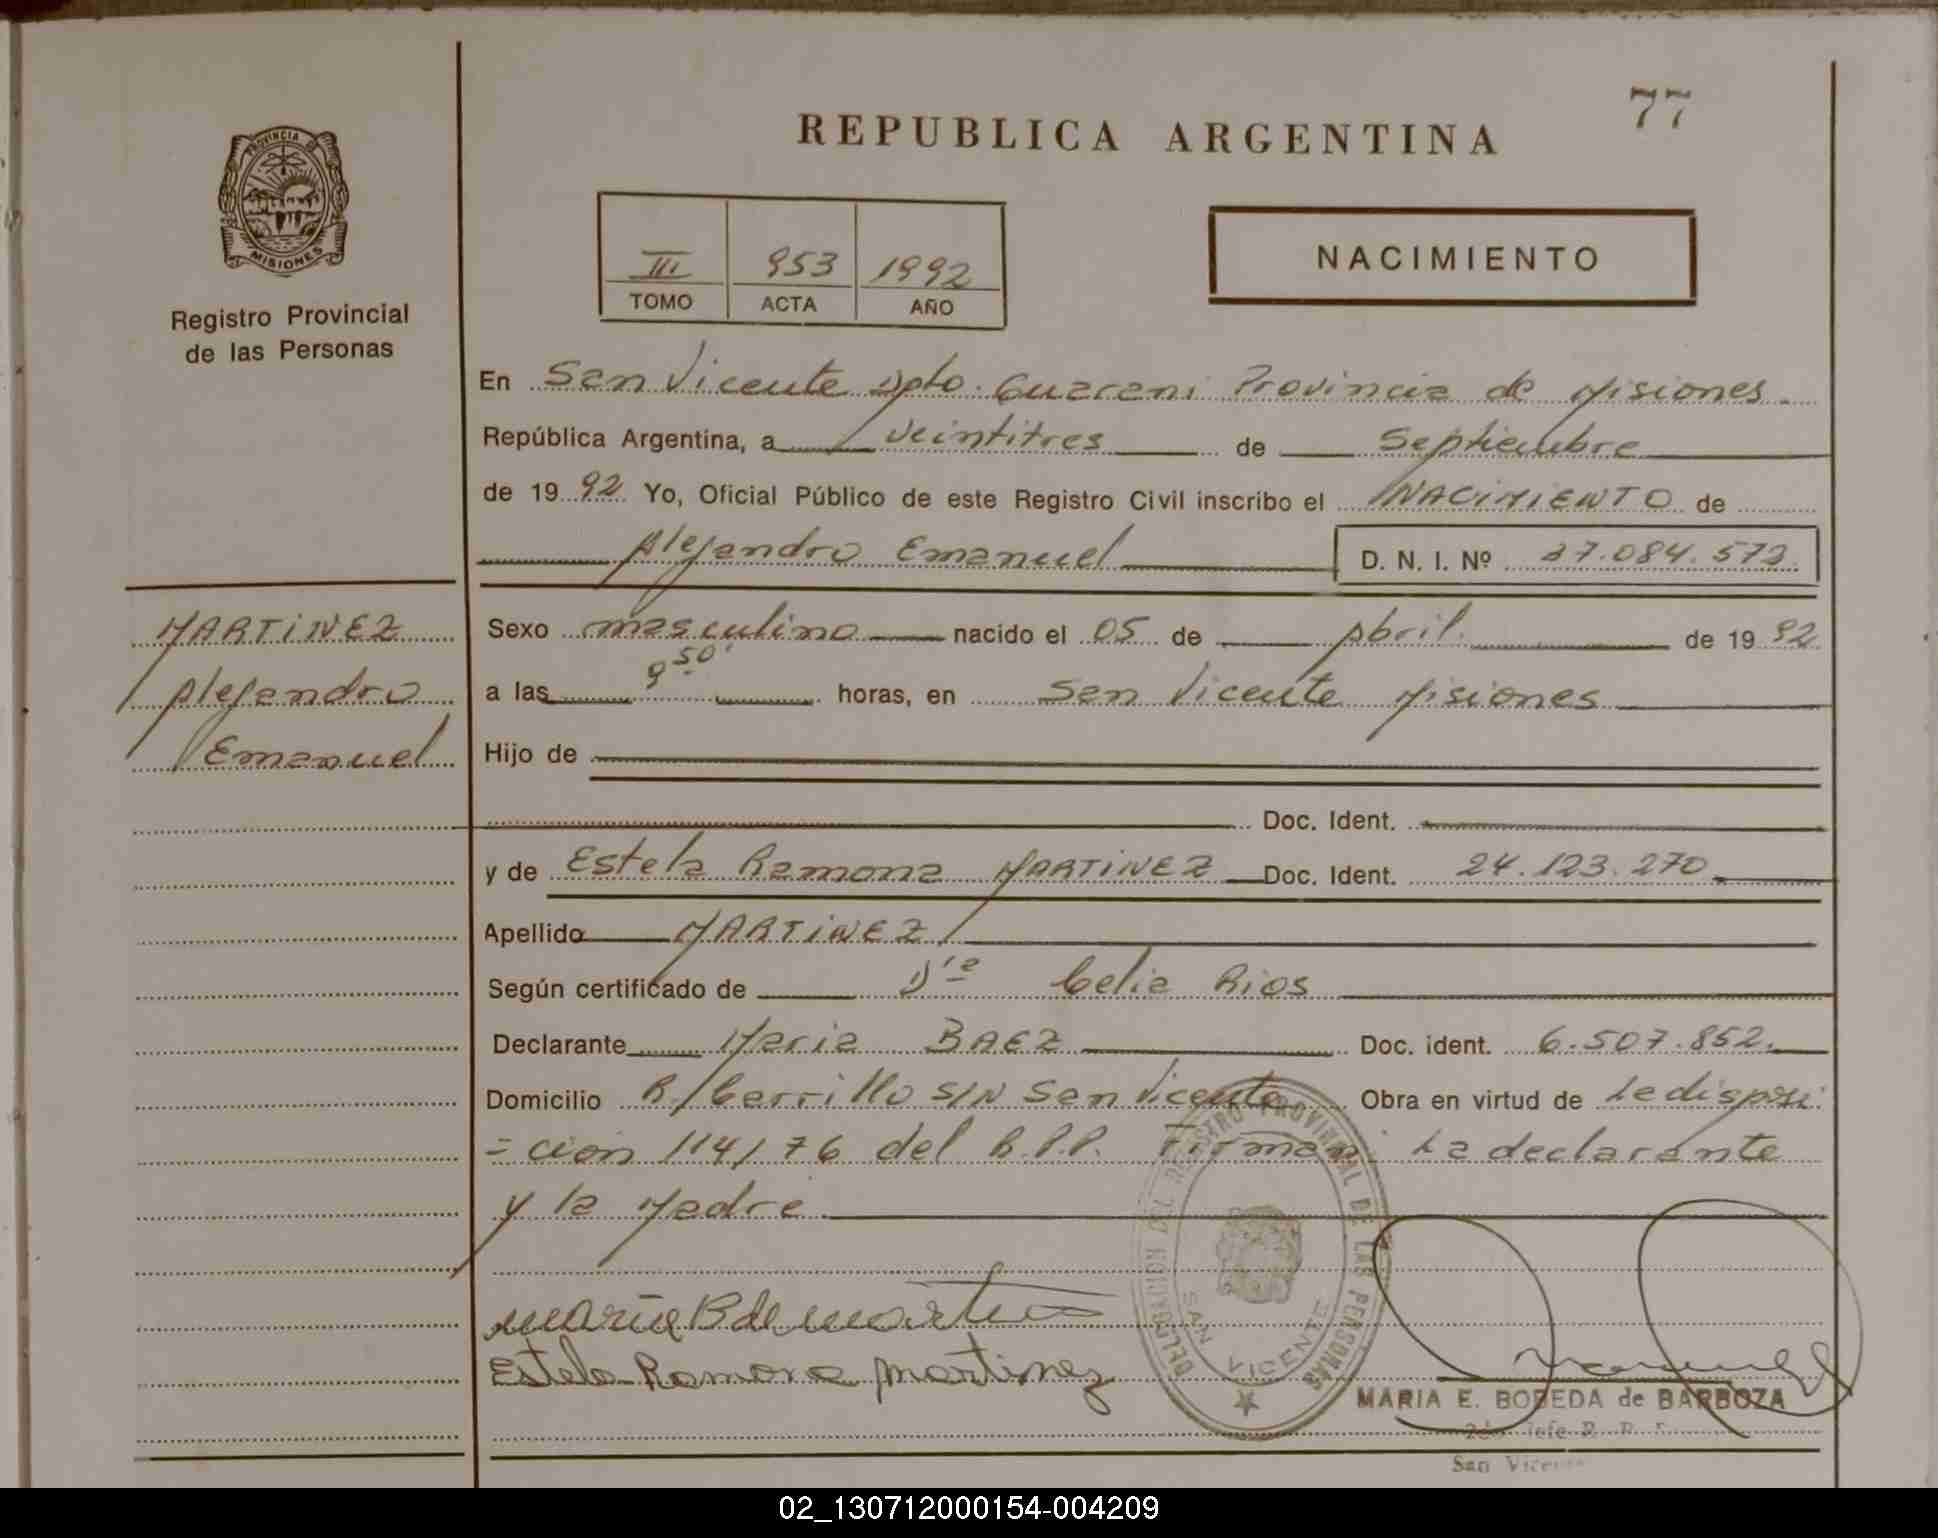 77
REPUBLICA ARGENTINA
PROVINCIA DE
MISIONES
Registro Provincial
de las Personas
III 953 1992
TOMO ACTA AÑO
NACIMIENTO
En San Vicente Dpto. Guarani Provincia de Misiones.
República Argentina, a veintitres de Septiembre
de 1992 Yo, Oficial Público de este Registro Civil inscribo el NACIMIENTO de
Alejandro Emanuel D. N. I. Nº 37.084.573.
MARTINEZ
Alejandro
Emanuel
Sexo masculino nacido el 05 de Abril. de 1992
a las 9 50' horas, en San Vicente Misiones
Hijo de
Doc. Ident.
y de Estela Ramona MARTINEZ Doc. Ident. 24.123.270
Apellido MARTINEZ
Según certificado de Celia Rios
Declarante Maria BAEZ Doc. ident. 6.507.852.
Domicilio R. Carrillo S/N San Vicente Obra en virtud de La disposi
= cion 114/76 del R.P.P. Firman: La declarante
y la Madre
Maria B de Martinez
Estela Ramona Martinez
DELEGACION DEL REGISTRO PROVINCIAL DE LAS PERSONAS
SAN VICENTE
MARIA E. BOBEDA de BARBOZA
2do Jefe R. P. P.
San Vicente
02_130712000154-004209